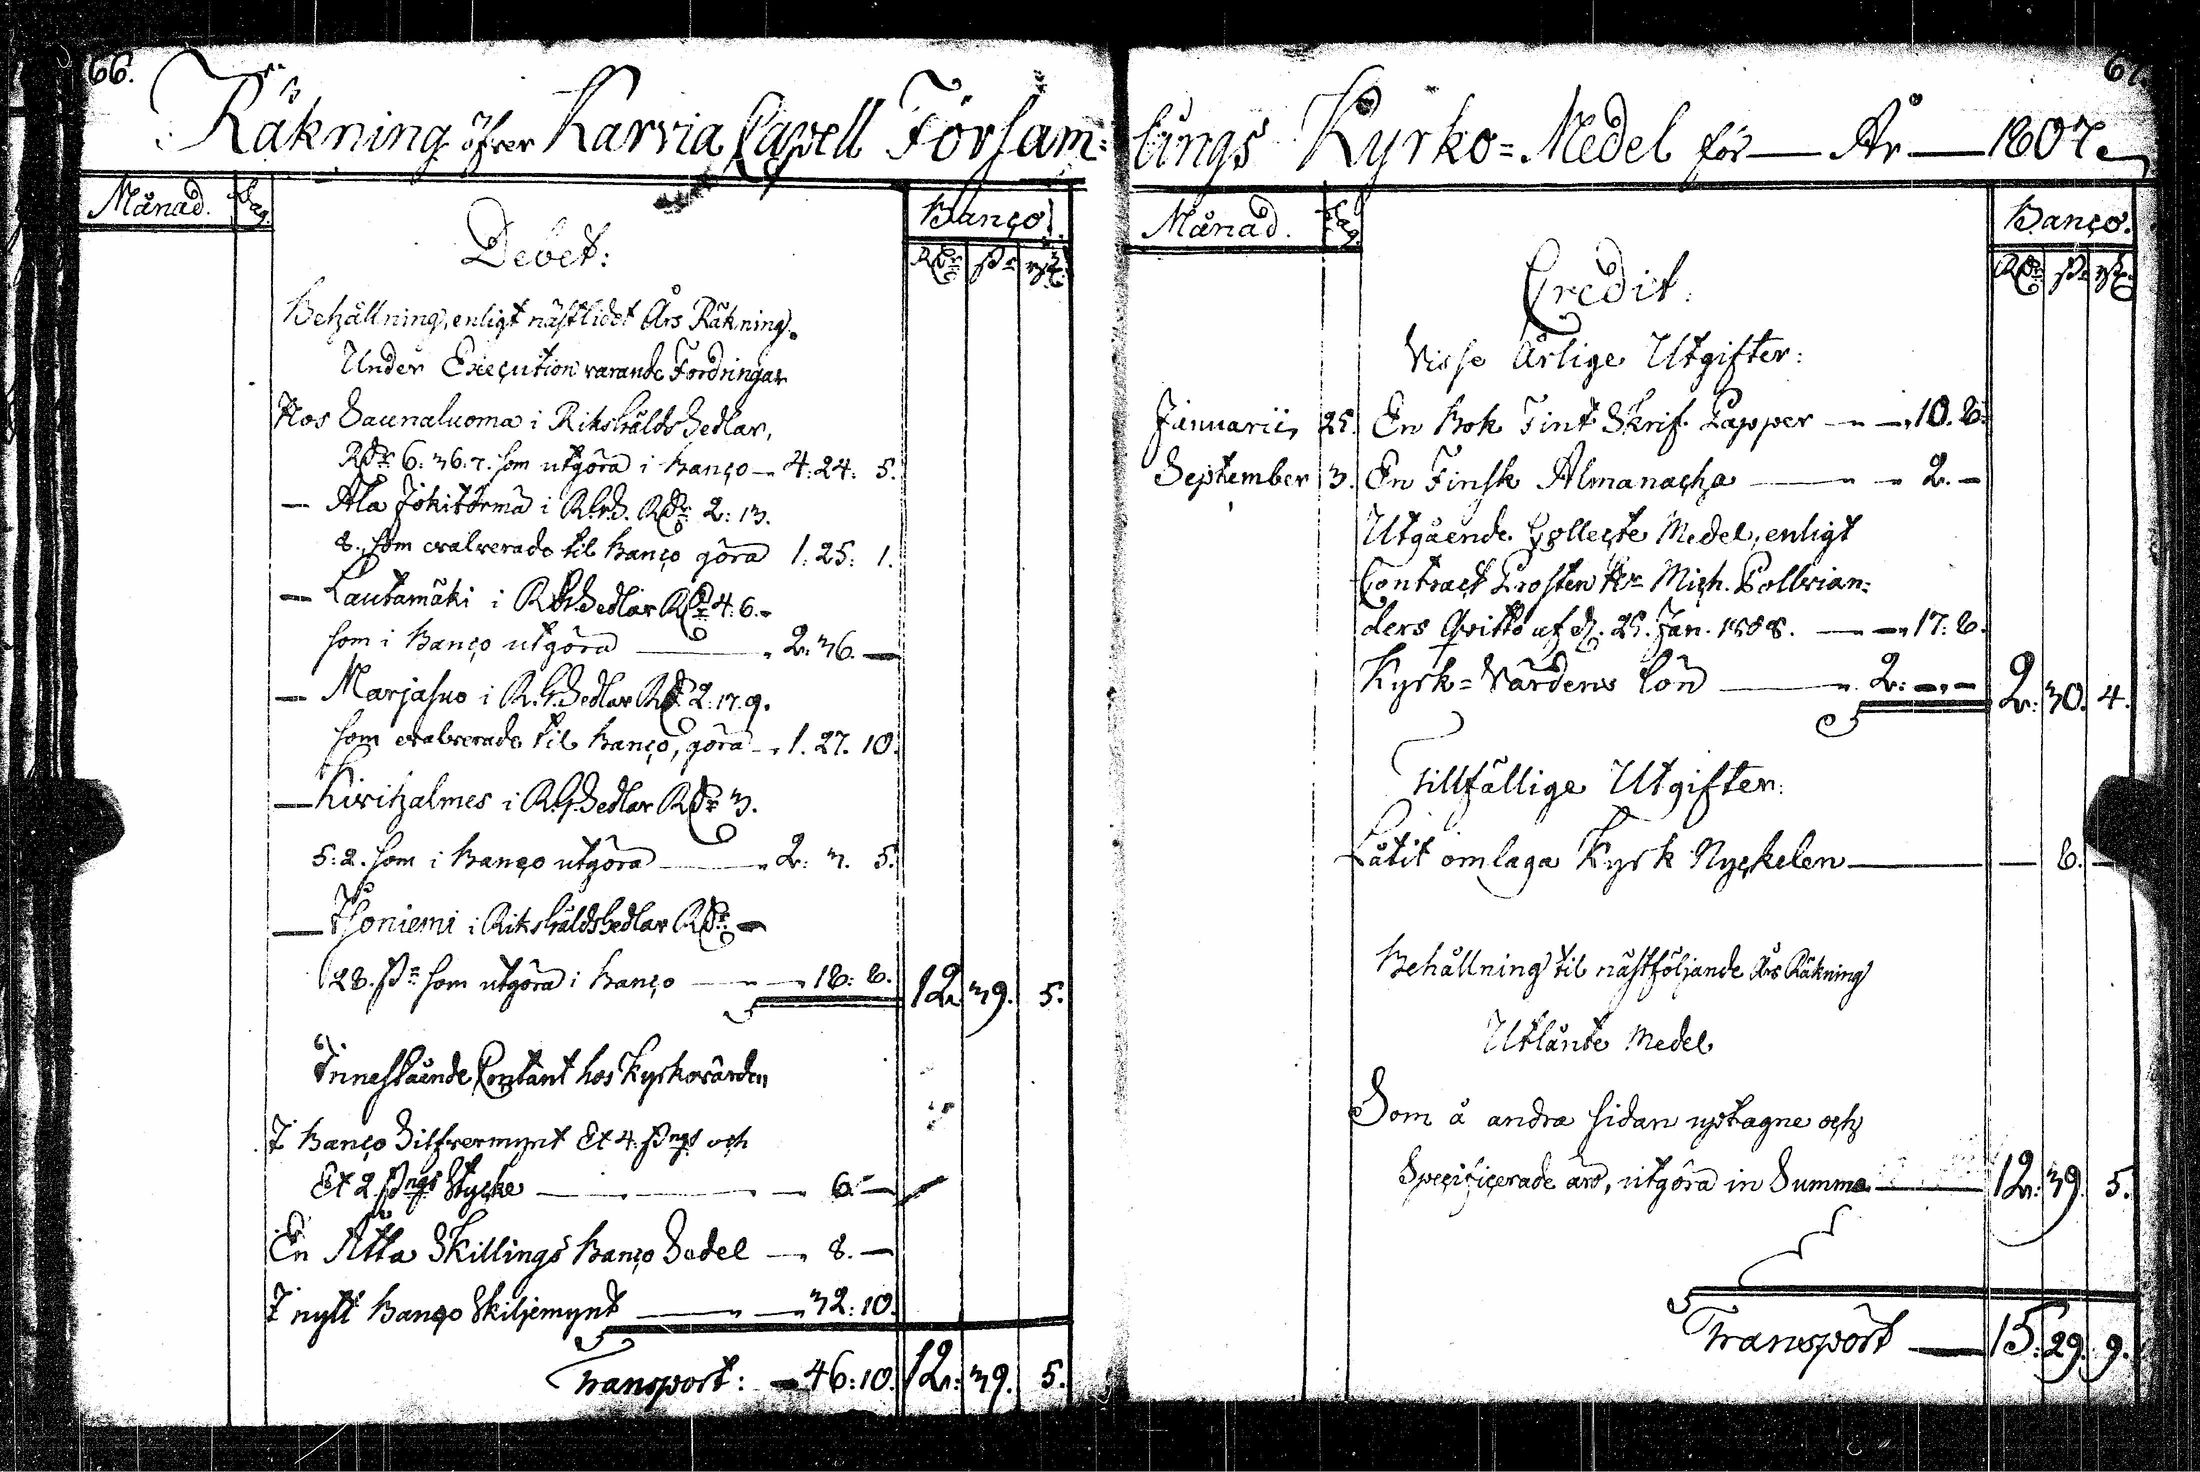 66.
Räkning öfver Karvia Capell Försam=
Månad. Dag. Banco.
Debet:
Rdr ſs rst.
Behållning, enligt nästlidet Års Räkning.
Under Execution varande Fordringar
Hos Saunaluoma i Riksgälds Sedlar,
Rdr 6: 36: 7. som utgöra i Banco — 4: 24: 5.
— Ala Jokitörmä i R.g.S. Rdr 2: 13.
8. som evalverade til Banco göra 1: 25: 1.
— Lautamäki i R.g.Sedlar Rdr 4: 6. -
som i Banco utgöra — 2: 36. —
— Marjasuo i R.g.Sedlar Rdr 2: 17. 9.
som evalverade til Banco, göra — 1. 27. 10.
— Kirihalmes i R.g.Sedlar Rdr 3.
5: 2. som i Banco utgöra — 2: 3. 5.
— Honiemi i Riksgäldssedlar Rdr —
28. ſs som utgöra i Banco — 18: 8. 12. 39. 5.
Innestående Contant hos Kyrkovärden
I Banco Silfvermynt Et 4. ſsngs och
Et 2 ſsngs Stycke — 6. —
En Åtta Skillings Banco Sedel — 8. —
I nytt Banco Skiljemynt — 32: 10.
Transport: — 46: 10. 12: 39. 5.
67.
lings Kyrko=Medel för — År — 1807.
Månad. Dag. Banco.
Rdr ſs rst.
Credit:
Visse Årlige Utgifter:
Januarii, 25. En Bok Fint Skrif Papper — 10. 8.
September 3. En Finsk Almanacha — 2. —
Utgående Collecte Medel, enligt
Contract Prosten Hr Mich. Polvian=
ders Qvitto af d. 25. Jan. 1808. — 17: 8.
Kyrk=Värdens Lön — 2: —. — 2: 30. 4.
Tillfällige Utgifter:
Låtit omlaga Kyrk Nyckelen — 8. —
Behållning til nästföljande Års Räkning
Utlånte Medel
Som å andra sidan uptagne och
Specificerade äro, utgöra in Summa — 12: 39. 5.
Transport — 15: 29. 9.